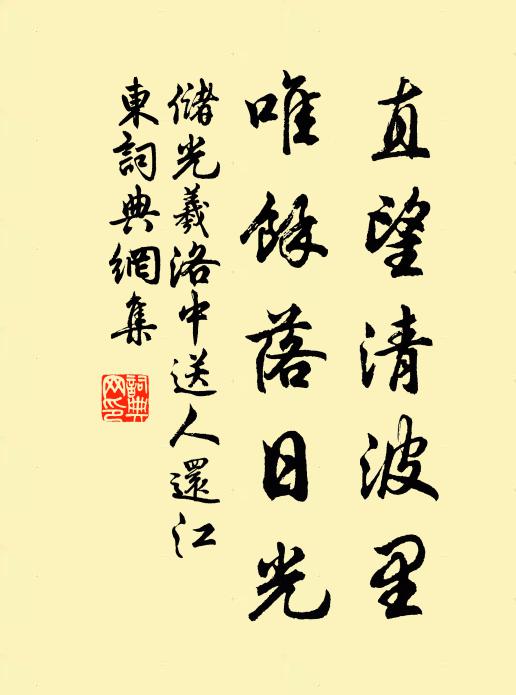 直望清波里
唯餘落日光
儲光羲洛中送人還江
東詞典網集
詞典
网印